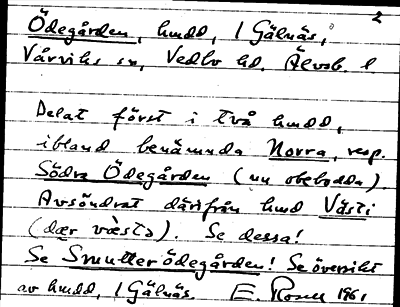 2
Ödegården, hmdd, 1 Gälnäs,
Vårviks sn, Vedbo hd, Älvsb. l
Delat först i två hmdd,
ibland benämnda Norra, resp.
Södra Ödegården (nu obebodda).
Avsöndrat därifrån hmd Västi
(dær væstɔ). Se dessa!
Se Smutterödegården! Se översikt
av hmdd, 1 Gälnäs. E Rosell 1961